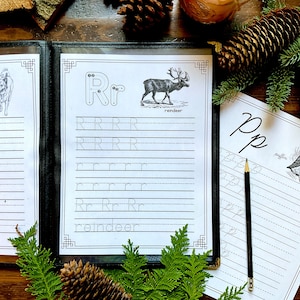 Rr
reindeer
R R R R
R R R R
r r r r r
r r r r r
Rr Rr Rr
reindeer
Pp